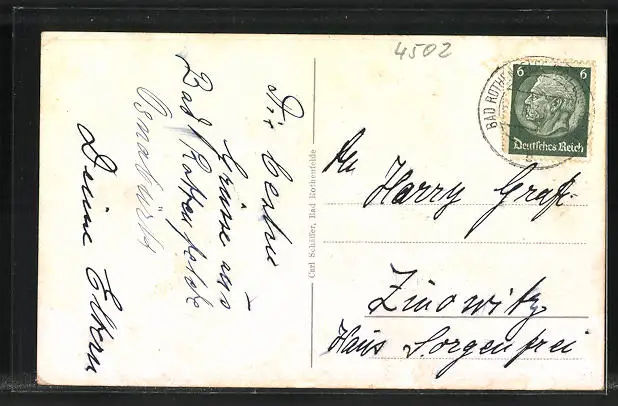 4502
BAD ROTHE
6 6
Deutsches Reich
Die besten
Grüsse aus
Bad Rothenfelde
Osnabrück
Deine Eltern
Carl Schäffer, Bad Rothenfelde
An Harry Graf.
Zinowitz
Haus Sorgenfrei